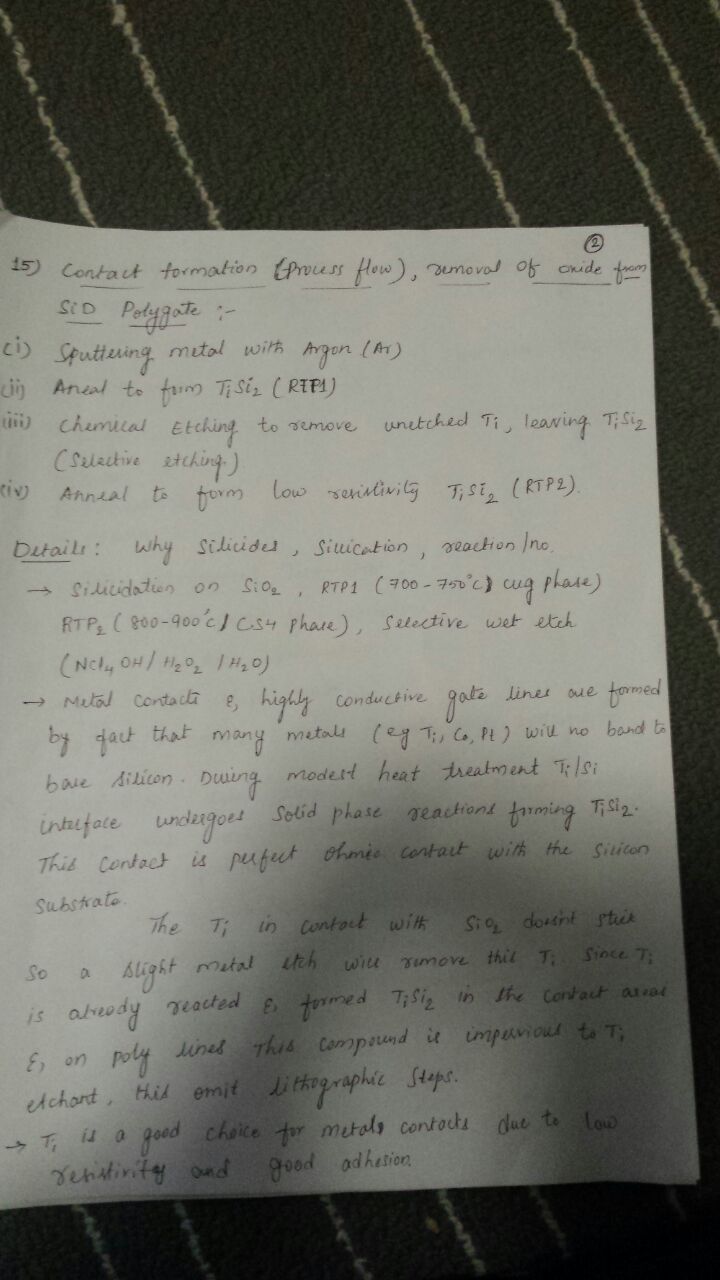 ②
15) Contact formation (Process flow), removal of oxide from
SiD Polygate :-
(i) Sputtering metal with Argon (Ar)
(ii) Aneal to form TiSi2 (RTP1)
(iii) Chemical Etching to remove unetched Ti, leaving TiSi2
(Selective etching.)
(iv) Anneal to form low resistivity TiSi2 (RTP2).
Details : Why Silicides, Sillication, reaction/no.
→ Silicidation on SiO2, RTP1 (700-750°C) cug phase)
RTP2 (800-900°C/ CS4 phase), Selective wet etch
(NCl4OH/ H2O2 /H2O)
→ Metal contacts &, highly conductive gate lines are formed
by fact that many metals (eg Ti, Co, Pt) will no band to
bare silicon. During modest heat treatment Ti/Si
interface undergoes Solid phase reactions forming TiSi2.
This Contact is perfect Ohmic contact with the silicon
Substrate.
The Ti in contact with SiO2 doesn't stick
So a slight metal etch will remove this Ti. Since Ti
is already reacted &, formed TiSi2 in the contact areas
&, on poly lines This compound is impervious to Ti
etchant, this omit lithographic Steps.
→ Ti is a good choice for metals contacts due to low
resistivity and good adhesion.